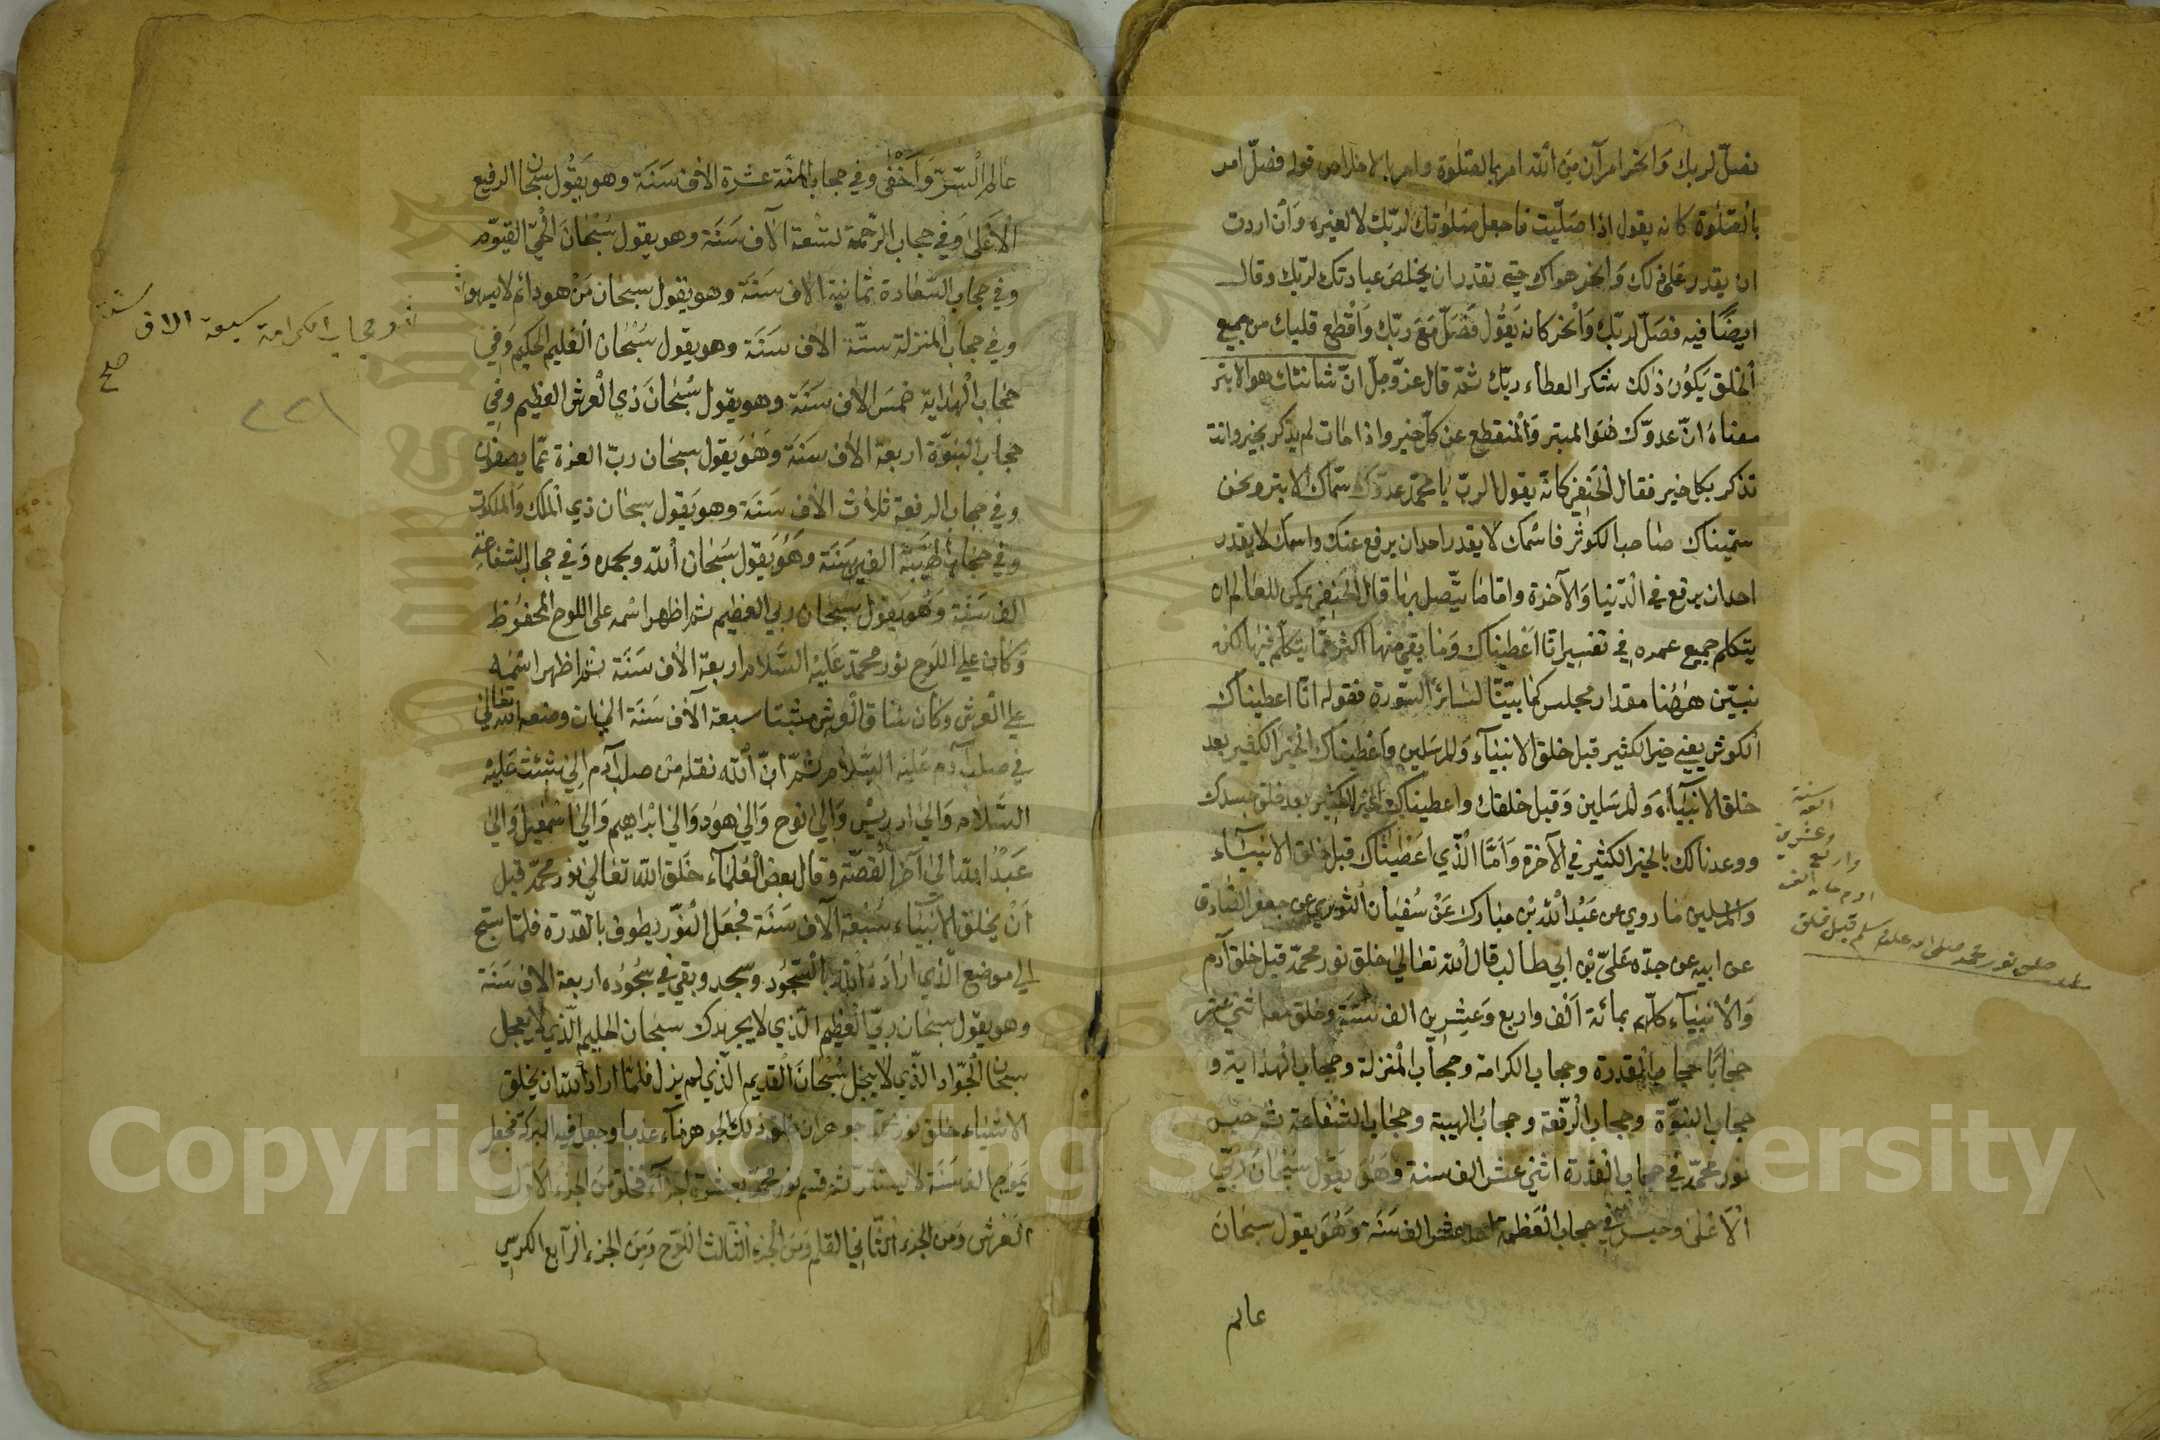 فصلّ لربك وانحر امرآن من الله امر بالصلوة وامر بالاخلاص قوله فصلّ امر
بالصلوة كانه يقول اذا صليت فاجعل صلوتك لربك لا لغيره وان اردت
ان يقدر على ذلك وانحر هواك حتى تقدر ان يخلص عبادتك لربك وقال
ايضًا فيه فصلّ لربك وانحر كانه يقول فصلّ مع ربك واقطع قلبك من جميع
الخلق يكون ذلك شكر العطاء ربك ثمّ قال عزّ وجلّ انّ شانئك هو الابتر
معناه انّ عدوّك هو المبتر والمنقطع عن كلّ خير واذا مات لم يذكر بخير وانت
تذكر بكل خير فقال الحنفى كانه يقول الربّ يا محمّد عدوّك سمّاك الابتر ونحن
سمّيناك صاحب الكوثر فاسمك لا يقدر احدان يرفع عنك واسمك لا يقدر
احدان يرفع في الدّنيا والآخرة وامّا ما يتّصل بها قال الحنفى يمكن للعالم ان
يتكلم جميع عمره في تفسير انّا اعطيناك وما بقي منها اكثر ممّا يتكلّم فيها لكن
نبيّن هٰهُنا مقدار مجلس كما بيّنّا لسائر السّورة فقوله انّا اعطيناك
الكوثر يعني خير الكثير قبل خلق الانبيآء والمرسلين واعطيناك الخير الكثير بعد
خلق الانبيآء والمرسلين وقبل خلقك واعطيناك الخير الكثير بعد خلق جسدك
ووعدنالك بالخير الكثير في الآخرة وامّا الّذي اعطيناك قبل خلق الانبيآء
والمرسلين ما روي عن عبد الله بن مبارك عن سفيان الثوري عن جعفر الصّادق
عن ابيه عن جدّه علىّ بن ابي طالب قال الله تعالىٰ خلق نور محمّد قبل خلق آدم
والانبيآء كلّهم بمائة الف واربع وعشرين الف سنة وخلق معه اثنى عشر
حجابًا حجاب القدرة وحجاب الكرامة وحجاب المنزلة وحجاب الهداية و
حجاب النبوّة وحجاب الرّفعة وحجاب الهيبة وحجاب الشفاعة ثم حبس
نور محمّد في حجاب القدرة اثنى عشر الف سنة وهو يقول سبحان ربّي
الاعلىٰ وحبس في حجاب العظمة احد عشر الف سنة وهو يقول سبحان
عالم
خلق نور محمد صلى الله عليه وسلم قبل خلق
ادم بمائة الف
واربع
وعشرين
الف سنة
عالم السّرّ واخفٰى وفي حجاب المنّة عشرة الاف سنة وهو يقول سبحان الرفيع
الاعلىٰ وفي حجاب الرّحمة تسعة الآف سنة وهو يقول سبحان الحيّ القيّوم
وفي حجاب السّعادة ثمانية الاف سنة وهو يقول سبحان من هو دائم لا يسهو
وفي حجاب المنزلة ستّة الاف سنة وهو يقول سبحان العليم الحكيم وفي
حجاب الهداية خمس الاف سنة وهو يقول سبحان ذي العرش العظيم وفي
حجاب النبوّة اربعة الاف سنة وهو يقول سبحان ربّ العزة عمّا يصفون
وفي حجاب الرفعة ثلاث الاف سنة وهو يقول سبحان ذي الملك والملكوت
وفي حجاب الهيبة الفين سنة وهو يقول سبحان الله وبحمده وفي حجاب الشفاعة
الف سنة وهو يقول سبحان ربي العظيم ثم اظهر اسمه على اللوح المحفوظ
وكان على اللوح نور محمّد عليه السّلام اربعة الاف سنة ثم اظهر اسمه
على العرش وكان على ساق العرش مثبتا سبعة الآف سنة الى ان وضعه الله تعالىٰ
في صلب آدم عليه السّلام ثمّ انّ الله نقله من صلب آدم الى شيث عليه
السّلام والىٰ ادريس والىٰ نوح والىٰ هود والىٰ ابراهيم والىٰ اسمعيل والىٰ
عبد الله الىٰ آخر القصّة وقال بعض العلمآء خلق الله تعالىٰ نور محمّد قبل
ان يخلق الانبيآء سبعة الآف سنة فجعل النّور يطوف بالقدرة فلمّا سبّح
الى موضع الّذي اراده الله بالسّجود وسجد وبقي في سجوده اربعة الاف سنة
وهو يقول سبحان ربّي العظيم الّذي لا يجهلك سبحان الحليم الّذي لا يعجل
سبحان الجوّاد الّذي لا يبخل سبحان القديم الّذي لم يزل فلمّا اراد الله ان يخلق
الاشياء خلق نور محمّد جوهرا ثم خلق ذلك الجوهر مآء عذبا وجعل فيه البركة فجعل
يموج الف سنة لا يستقرّ ثم قسم نور محمّد بعشرة اجزآء فخلق من الجزء الاوّل
العرش ومن الجزء الثّاني القلم ومن الجزء الثّالث اللوح ومن الجزء الرّابع الكرسي
وحجاب الكرامة سبعة الاف سنة
صح
٢٢١
Copyright © King Saud University